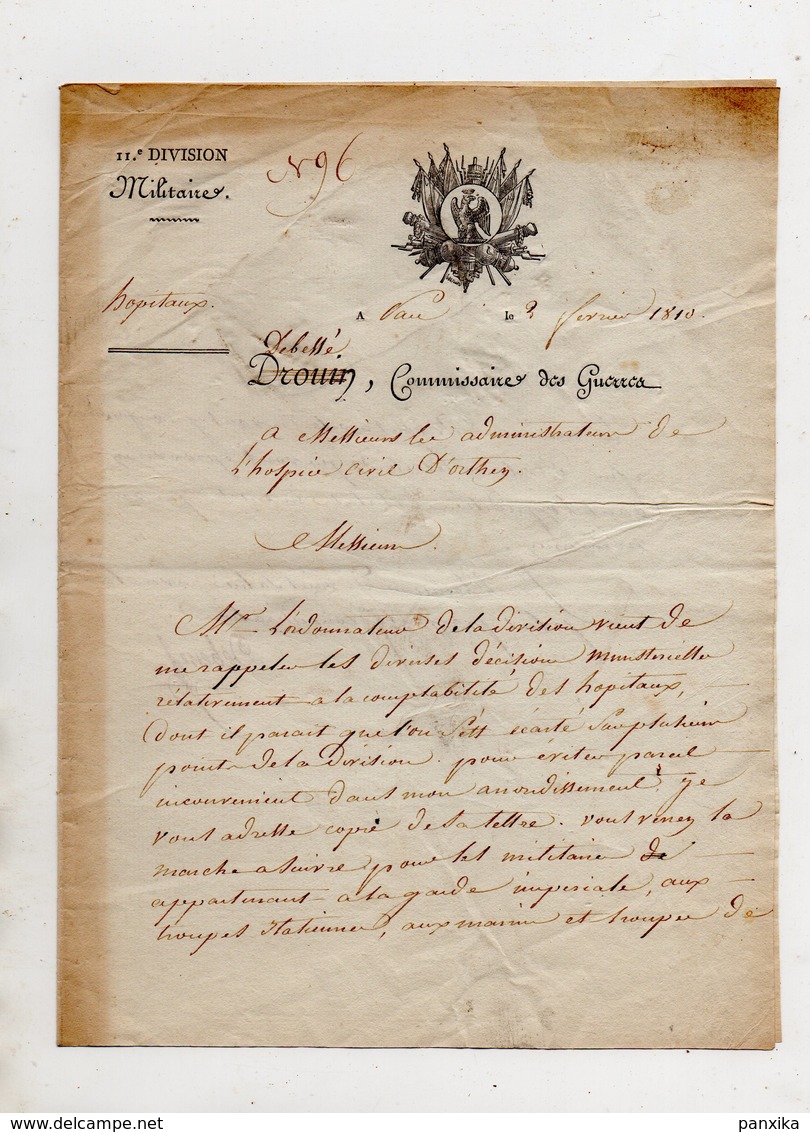 11.e DIVISION
Militaire.
N 96
hopitaux.
A Pau le 2 fevrier 1810.
Debessé
Drouin, Commissaire des Guerres
a Messieurs les administrateurs de
L'hospice civil D'orthez.
Messieurs
Mr L'ordonnateur de la division vient de
me rappeler les diverses décisions Ministerielles
rélativement a la comptabilité des hopitaux,
Dont il parait que l'on s'est écarté sur plusieurs
points de la division. pour eviter pareil
inconvenient dans mon arrondissement, je
vous adresse copie de sa lettre. vous verrez la
marche a suivre pour les militaires de
appartenant a la garde imperiale, aux
troupes italiennes, aux marins et troupes de
panxika